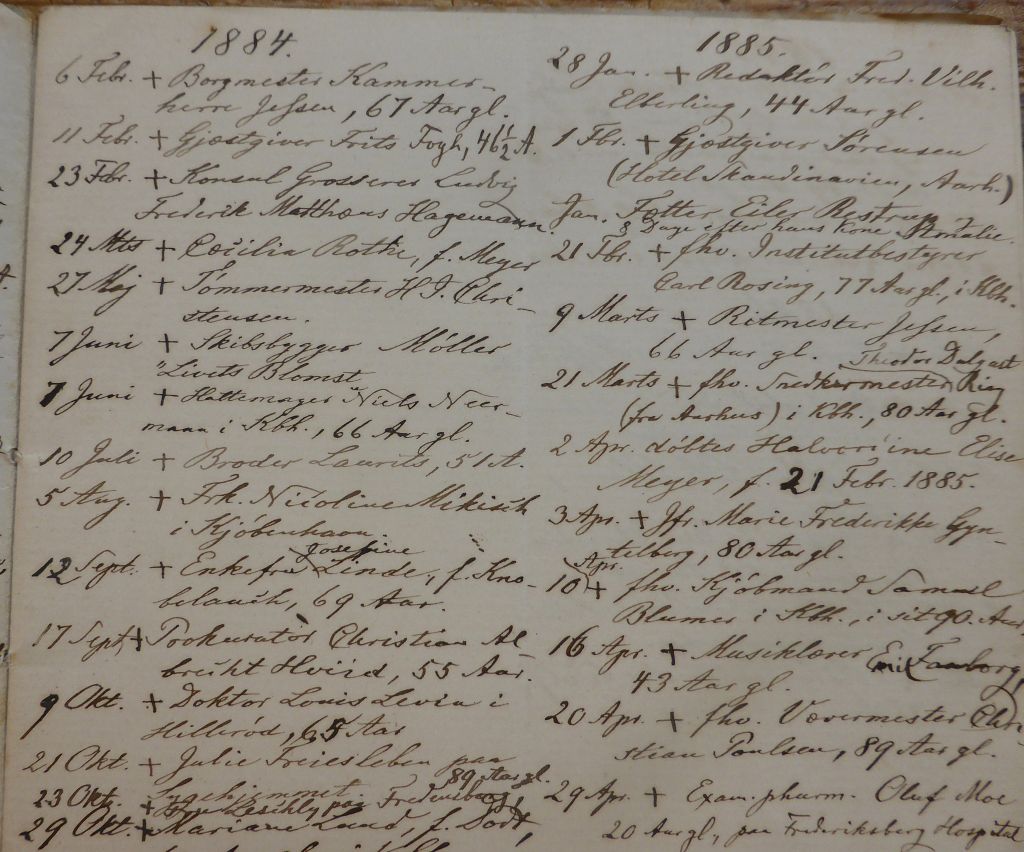 1884.
6 Febr. + Borgmester Kammer-
herre Jessen, 67 Aar gl.
11 Febr. + Gjæstgiver Frits Fogh, 46½ A.
23 Febr. + Konsul Grosserer Ludvig
Frederik Matthæus Hagemann.
24 Mts + Cæcilia Rothe, f. Meyer
27 Maj + Tømmermester H. J. Chri-
stensen.
7 Juni + Skibsbygger Møller
"Livets Blomst"
7 Juni + Hattemager Niels Neer-
mann i Kbh., 66 Aar gl.
10 Juli + Broder Laurits, 51 A.
5 Aug. + Frk. Nicoline Mikisch
i Kjöbenhavn.
Josefine
12 Sept. + Enkefru Linde, f. Kno-
belauch, 69 Aar.
17 Sept + Prokurator Christian Al-
brecht Hviid, 55 Aar.
9 Okt. + Doktor Louis Levin i
Hillerød, 65 Aar
21 Okt. + Julie Freiesleben paa
Sygehjemmet 89 Aar gl.
23 Okt. + paa Frederiksberg,
29 Okt. + Mariane Lund, f. Dodt,
1885.
28 Jan. + Redaktör Fred. Vilh.
Elberling, 44 Aar gl.
1 Fbr. + Gjæstgiver Sörensen
(Hotel Skandinavien, Aarh.)
Jan. Fætter Eiler Restrup
8 Dage efter hans Kone Amalie.
21 Fbr. + fhv. Institutbestyrer
Carl Rosing, 77 Aar gl., i Kbh.
9 Marts + Ritmester Jessen,
66 Aar gl. Theodor Dalgast
21 Marts + fhv. Snedkermester Ring
(fra Aarhus) i Kbh., 80 Aar gl.
2 Apr. döbtes Halvorine Elise
Meyer, f. 21 Febr. 1885.
3 Apr. + Jfr. Marie Frederikke Gyn-
telberg, 80 Aar gl.
Apr.
10 + fhv. Kjöbmand Samuel
Blumer i Kbh., i sit 90. Aar,
16 Apr. + Musiklærer Emil Faaborg,
43 Aar gl.
20 Apr. + fhv. Vævermester Chri-
stian Poulsen, 89 Aar gl.
29 Apr. + Exam. pharm. Oluf Moe
20 Aar gl., paa Frederiksberg Hospital